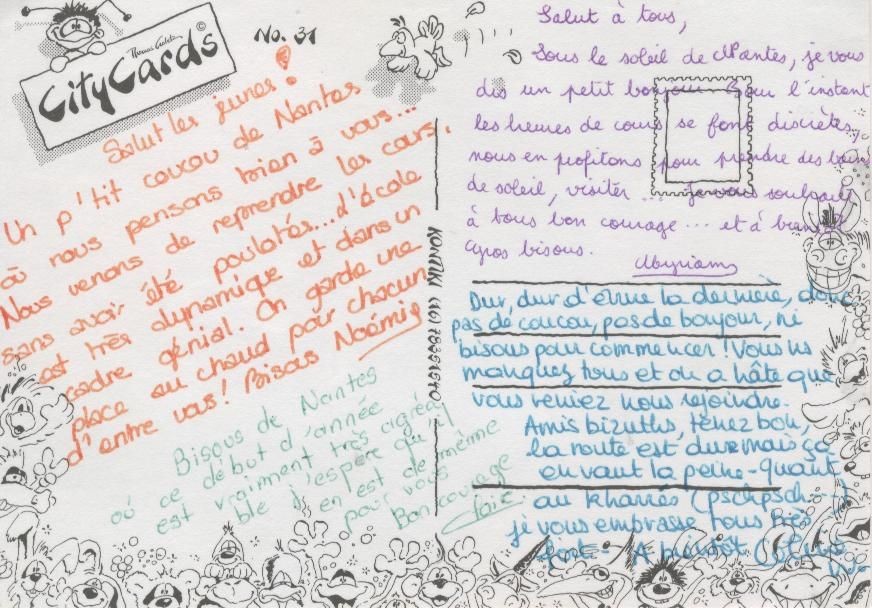 Thomas
©
CityCards
No. 31
Salut les jeunes !
Un p'tit coucou de Nantes
où nous pensons bien à vous...
Nous venons de reprendre les cours,
sans avoir été poulotés... l'école
est très dynamique et dans un
cadre génial. On garde une
place au chaud pour chacun
d'entre vous ! Bisous Noémie
Bisous de Nantes
où ce début d'année
est vraiment très agréa
ble j'espère qu'il
en est de même
pour vous
Bon courage
Claire
Salut à tous,
Sous le soleil de Nantes, je vous
dis un petit bonjour. Pour l'instant
les heures de cours se font discrètes,
nous en profitons pour prendre des bains
de soleil, visiter ... je vous souhaite
à tous bon courage ... et à bientôt
Gros bisous.
Myriam
Dur, dur d'être la dernière, donc
pas de coucou, pas de boujour, ni
bisous pour commencer ! Vous ns
manquez tous et on a hâte que
vous veniez nous rejoindre.
Amis bizuths, tenez bon,
la route est dure mais ça
en vaut la peine - quant
au kharrés (pschpsch...)
je vous embrasse tous très
fort - A bientôt